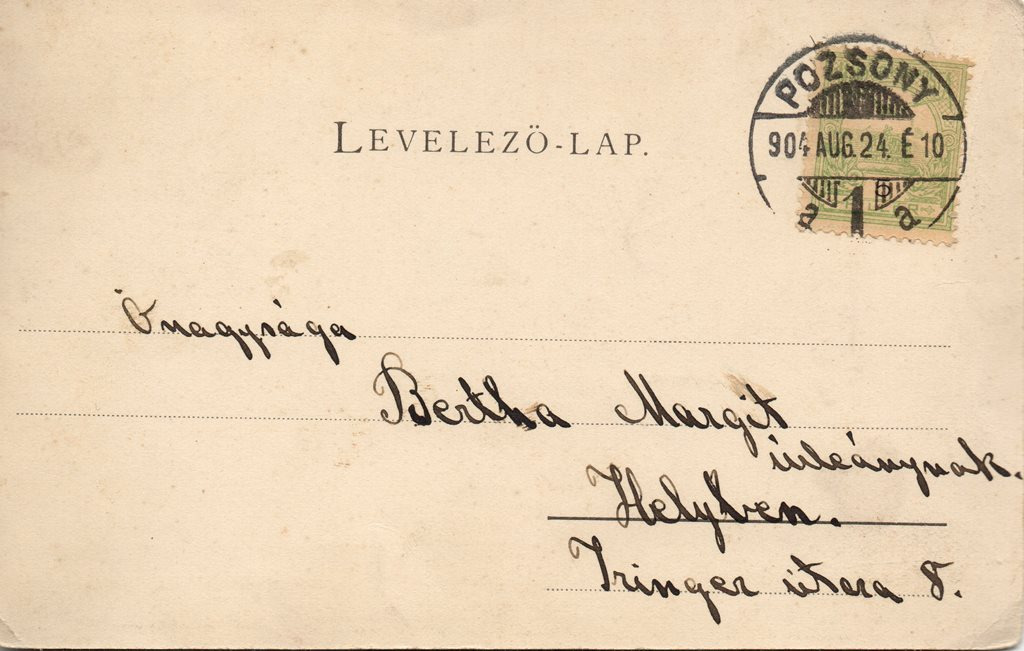 POZSONY
904 AUG. 24. É 10
a 1 a
LEVELEZŐ-LAP.
Őnagysága
Bertha Margit
úrleánynak.
Helyben.
utcza 8.